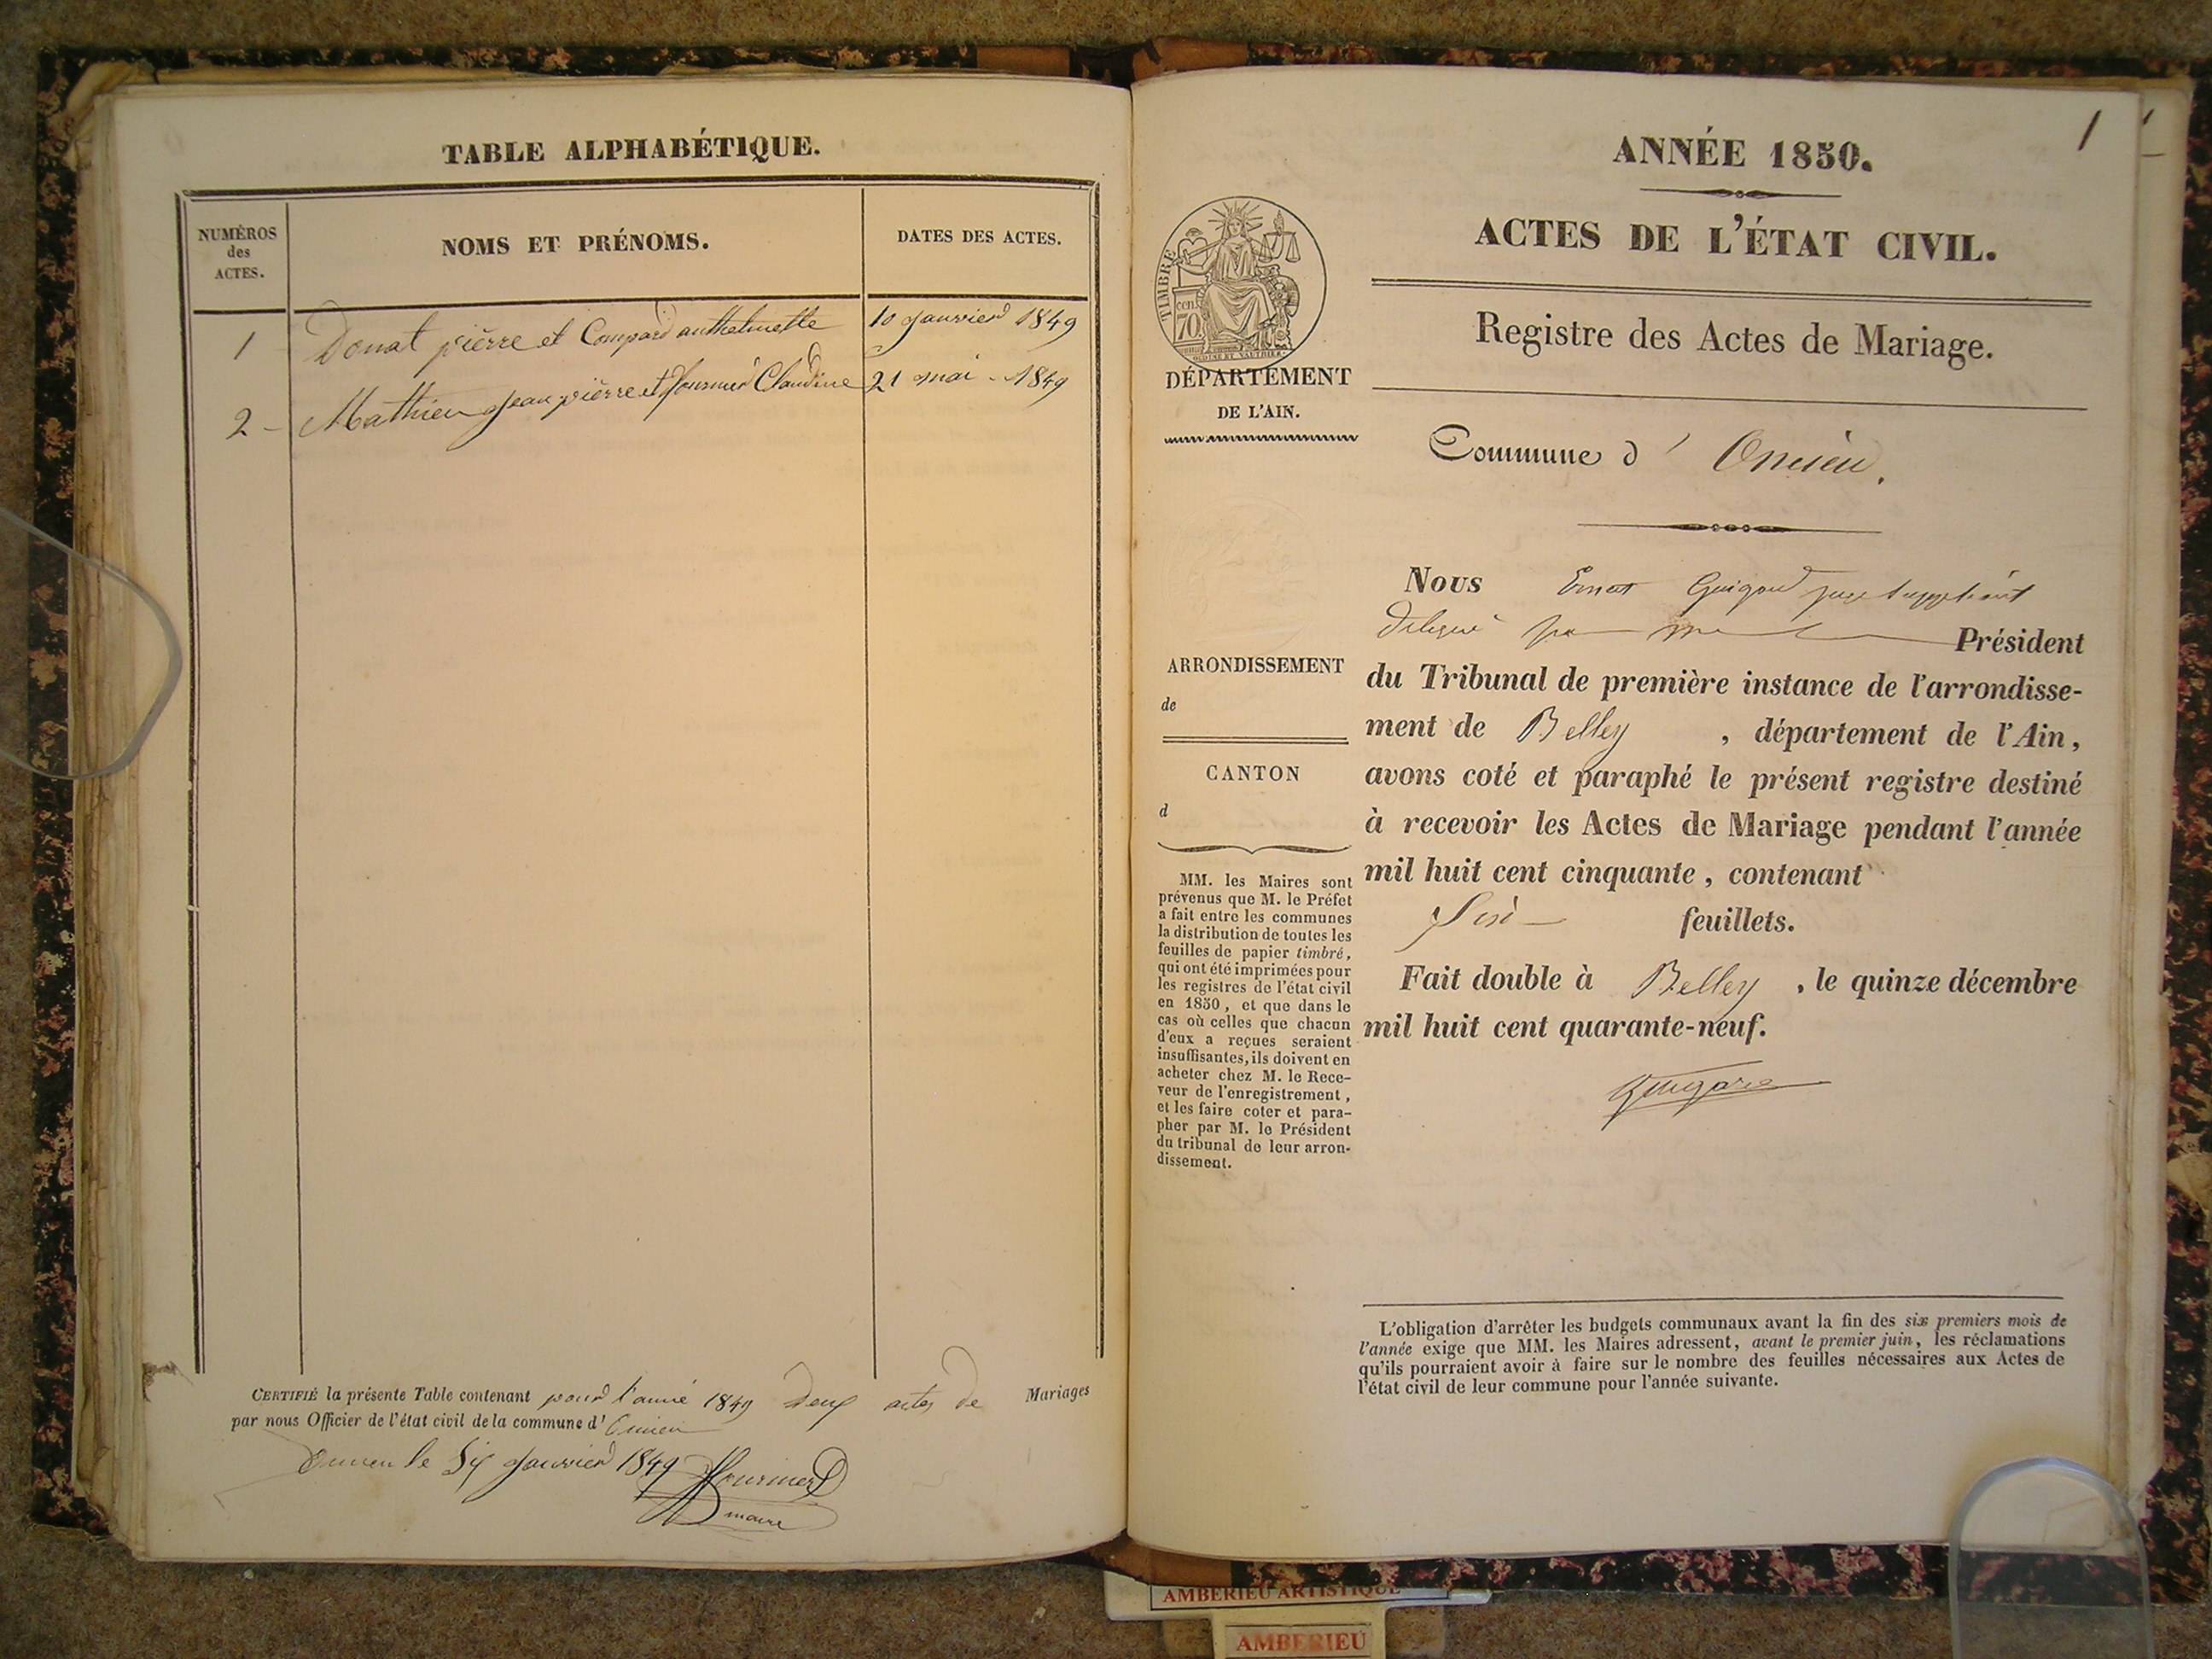 TABLE ALPHABÉTIQUE.
NUMÉROS
des
ACTES.
NOMS ET PRÉNOMS.
DATES DES ACTES.
1 Donat pierre et Compard anthelmette 10 janvier 1849
2 - Mathieu jean pierre et fournier Claudine 21 mai - 1849
CERTIFIÉ la présente Table contenant pour l'année 1849 deux actes de Mariages
par nous Officier de l'état civil de la commune d' Oncieu
Oncieu le Six janvier 1849
maire
1
ANNÉE 1850.
ACTES DE L'ÉTAT CIVIL.
Registre des Actes de Mariage.
TIMBRE
cen.
70
DÉPARTEMENT
DE L'AIN.
Commune d' Oncieu.
Nous juge suppléant
délégué par Président
du Tribunal de première instance de l'arrondisse-
ment de Belley , département de l'Ain,
avons coté et paraphé le présent registre destiné
à recevoir les Actes de Mariage pendant l'année
mil huit cent cinquante, contenant
feuillets.
Fait double à Belley , le quinze décembre
mil huit cent quarante-neuf.
ARRONDISSEMENT
de
CANTON
d
MM. les Maires sont
prévenus que M. le Préfet
a fait entre les communes
la distribution de toutes les
feuilles de papier timbré,
qui ont été imprimées pour
les registres de l'état civil
en 1850, et que dans le
cas où celles que chacun
d'eux a reçues seraient
insuffisantes, ils doivent en
acheter chez M. le Rece-
veur de l'enregistrement,
et les faire coter et para-
pher par M. le Président
du tribunal de leur arron-
dissement.
L'obligation d'arrêter les budgets communaux avant la fin des six premiers mois de
l'année exige que MM. les Maires adressent, avant le premier juin, les réclamations
qu'ils pourraient avoir à faire sur le nombre des feuilles nécessaires aux Actes de
l'état civil de leur commune pour l'année suivante.
AMBERIEU ARTISTIQUE
AMBERIEU